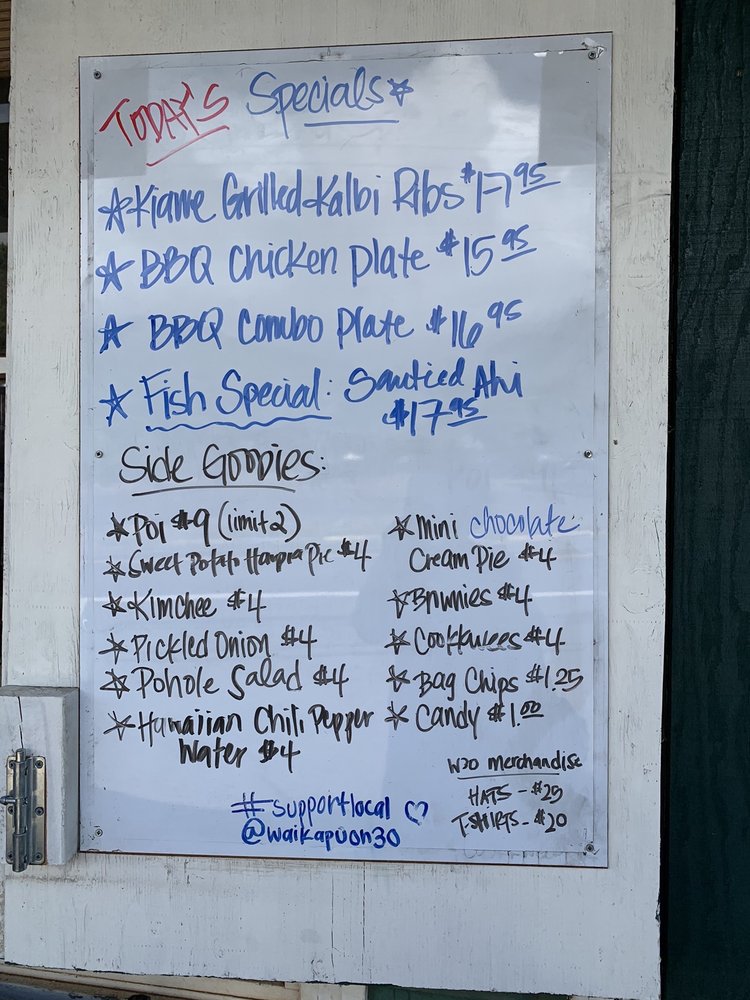 TODAY'S Specials
Kiawe Grilled Kalbi Ribs $17.95
BBQ Chicken Plate $15.95
BBQ Combo Plate $16.95
Fish Special: Sauteed Ahi
$17.95
Side Goodies:
Poi $9 (limit 2)
Sweet Potato Haupia Pie $4
Kimchee $4
Pickled Onion $4
Pohole Salad $4
Hawaiian Chili Pepper
Water $4
Mini chocolate
Cream Pie $4
Brownies $4
$4
Bag Chips $1.25
Candy $1.00
W30 Merchandise
HATS - $25
T-SHIRTS - $20
#supportlocal ♡
@waikapuon30